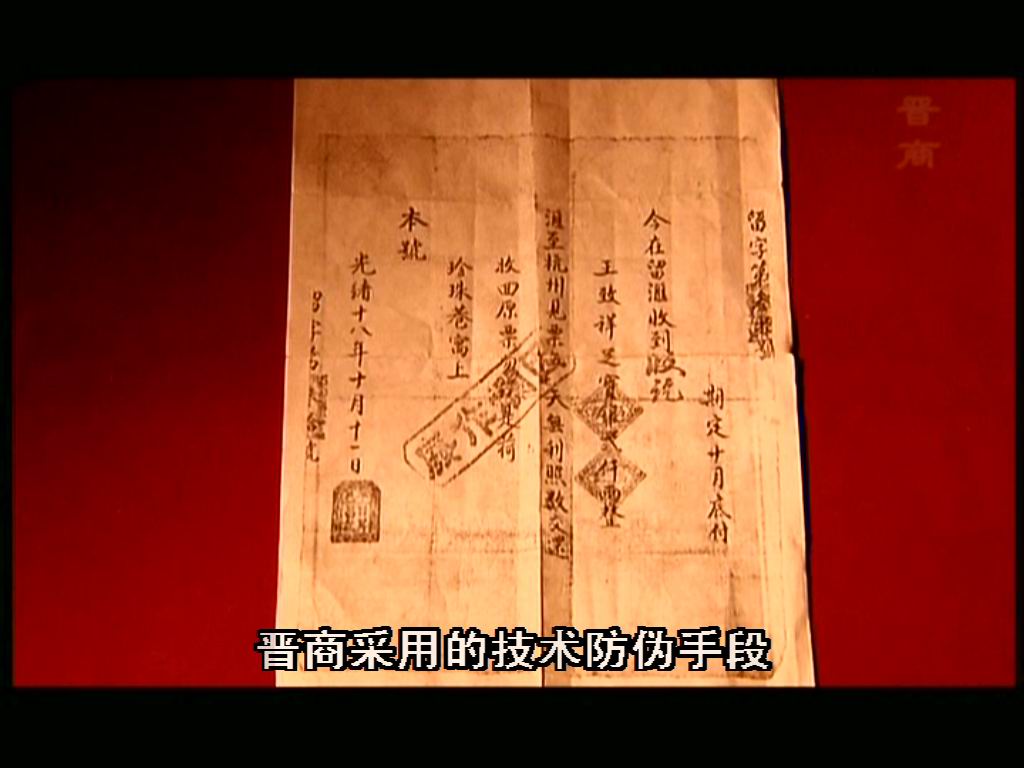 晋商
留字第
期定十月底付
今在留滙收到
王致祥足寶銀弍仟両整
滙至杭州見票 天無利照數交還
收回原票
珍珠巷寓上
本號
光緒十八年十月十一日
作廢
晋商采用的技术防伪手段